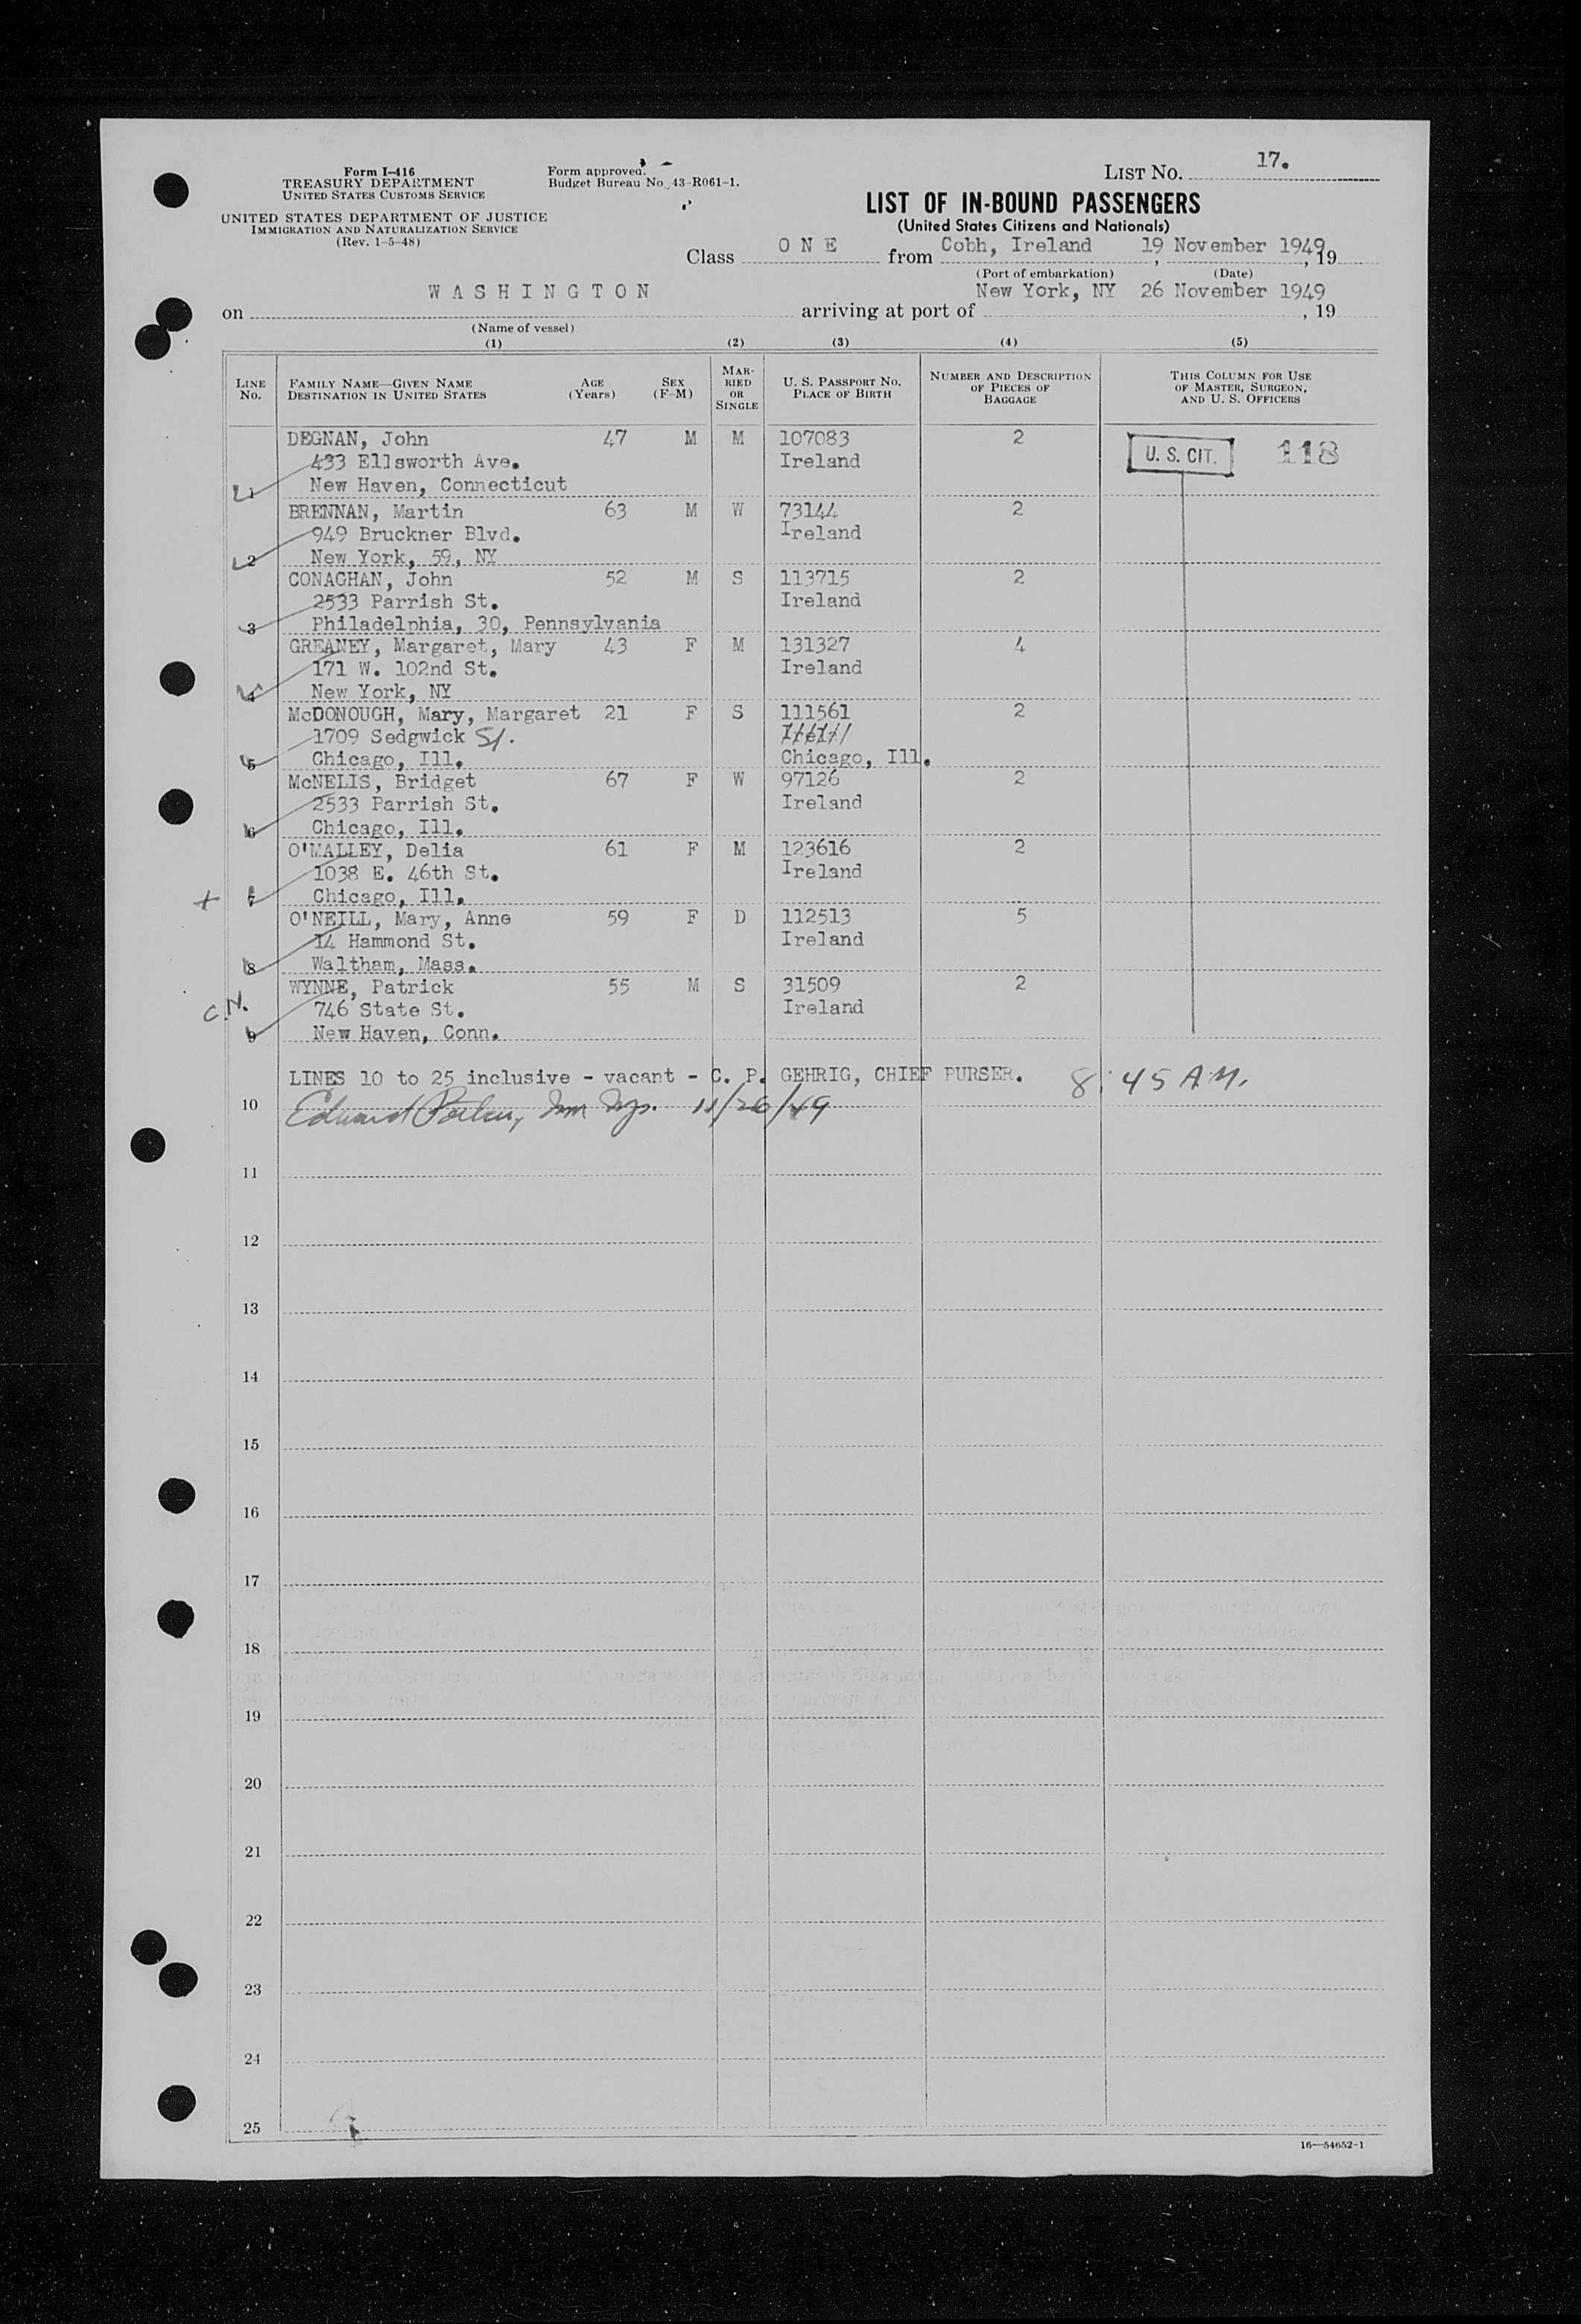 Form I-416
TREASURY DEPARTMENT
UNITED STATES CUSTOMS SERVICE
UNITED STATES DEPARTMENT OF JUSTICE
IMMIGRATION AND NATURALIZATION SERVICE
(Rev. 1-5-48)
Form approved.
Budget Bureau No. 43-R061-1.
LIST NO. 17.
LIST OF IN-BOUND PASSENGERS
(United States Citizens and Nationals)
Class O N E from Cobh, Ireland, 19 November 1949, 19
(Port of embarkation) (Date)
on W A S H I N G T O N arriving at port of New York, NY 26 November 1949, 19
(Name of vessel)
(1) (2) (3) (4) (5)
LINE NO. FAMILY NAME—GIVEN NAME DESTINATION IN UNITED STATES AGE (Years) SEX (F-M) MARRIED OR SINGLE U. S. PASSPORT NO. PLACE OF BIRTH NUMBER AND DESCRIPTION OF PIECES OF BAGGAGE THIS COLUMN FOR USE OF MASTER, SURGEON, AND U. S. OFFICERS
DEGNAN, John 47 M M 107083 2 U. S. CIT. 118
433 Ellsworth Ave. Ireland
1 New Haven, Connecticut
BRENNAN, Martin 63 M W 73144 2
949 Bruckner Blvd. Ireland
2 New York, 59, NY
CONAGHAN, John 52 M S 113715 2
2533 Parrish St. Ireland
3 Philadelphia, 30, Pennsylvania
GREANEY, Margaret, Mary 43 F M 131327 4
171 W. 102nd St. Ireland
4 New York, NY
McDONOUGH, Mary, Margaret 21 F S 111561 2
1709 Sedgwick St.
5 Chicago, Ill. Chicago, Ill.
McNELIS, Bridget 67 F W 97126 2
2533 Parrish St. Ireland
6 Chicago, Ill.
O'MALLEY, Delia 61 F M 123616 2
1038 E. 46th St. Ireland
+ 7 Chicago, Ill.
O'NEILL, Mary, Anne 59 F D 112513 5
14 Hammond St. Ireland
8 Waltham, Mass.
WYNNE, Patrick 55 M S 31509 2
C.N. 746 State St. Ireland
9 New Haven, Conn.
LINES 10 to 25 inclusive - vacant - C. P. GEHRIG, CHIEF PURSER. 8:45 A.M.
10 Edward 11/26/49
11
12
13
14
15
16
17
18
19
20
21
22
23
24
25
16—54652-1